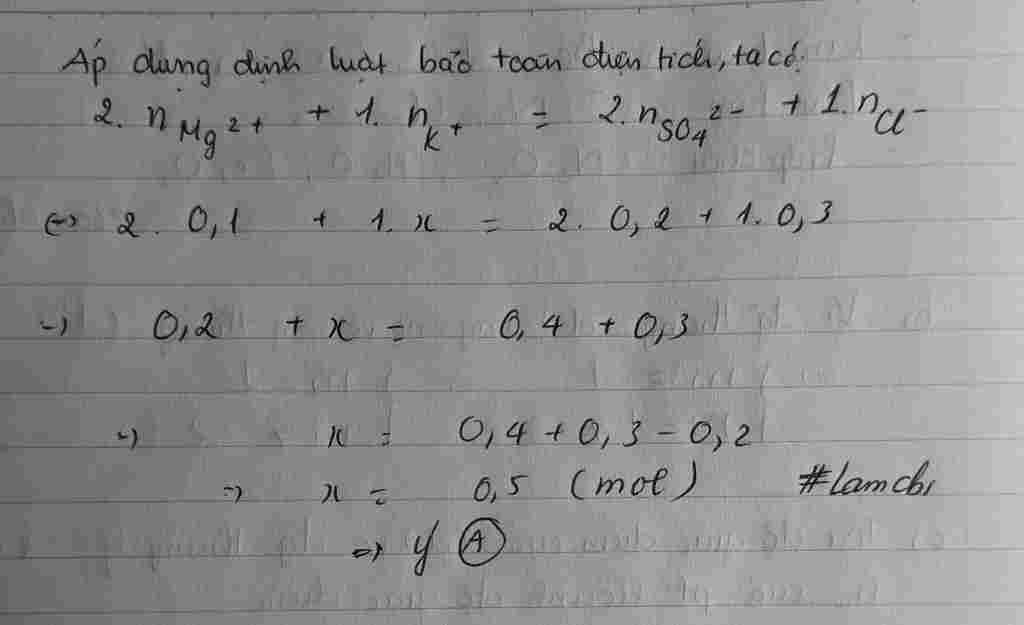 Áp dụng định luật bảo toàn điện tích, ta có:
2. n Mg²⁺ + 1. n K⁺ = 2. n SO₄²⁻ + 1. n Cl⁻
<=> 2. 0,1 + 1. x = 2. 0,2 + 1. 0,3
=> 0,2 + x = 0,4 + 0,3
=> x = 0,4 + 0,3 - 0,2
=> x = 0,5 (mol) #lamchi
=> ý A